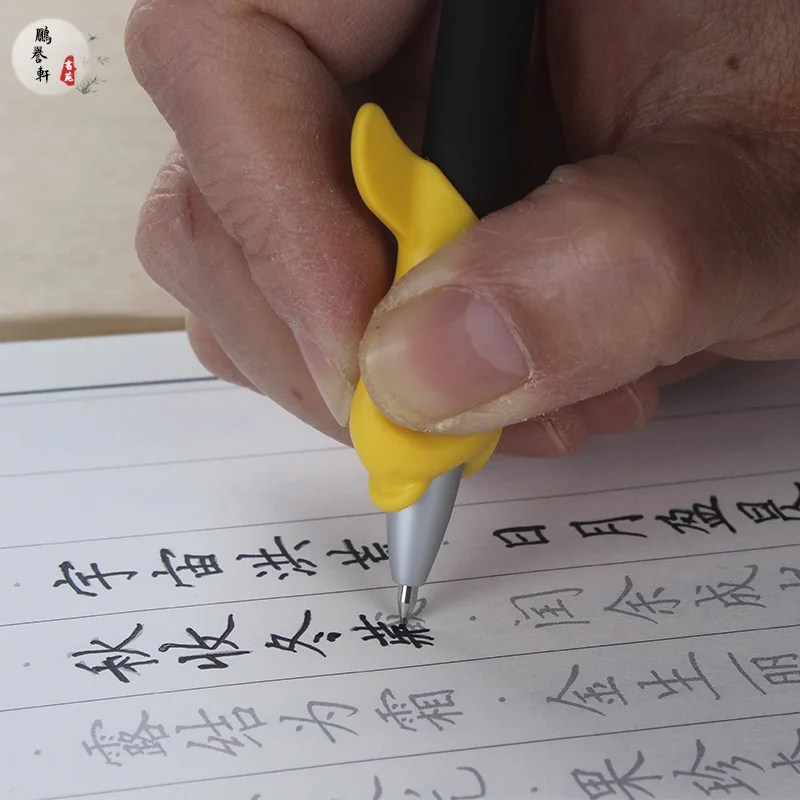 鵬誉軒
書苑
宇宙洪荒·日月盈昃
秋收冬藏·闰余成
露结为霜·金生丽
果珍